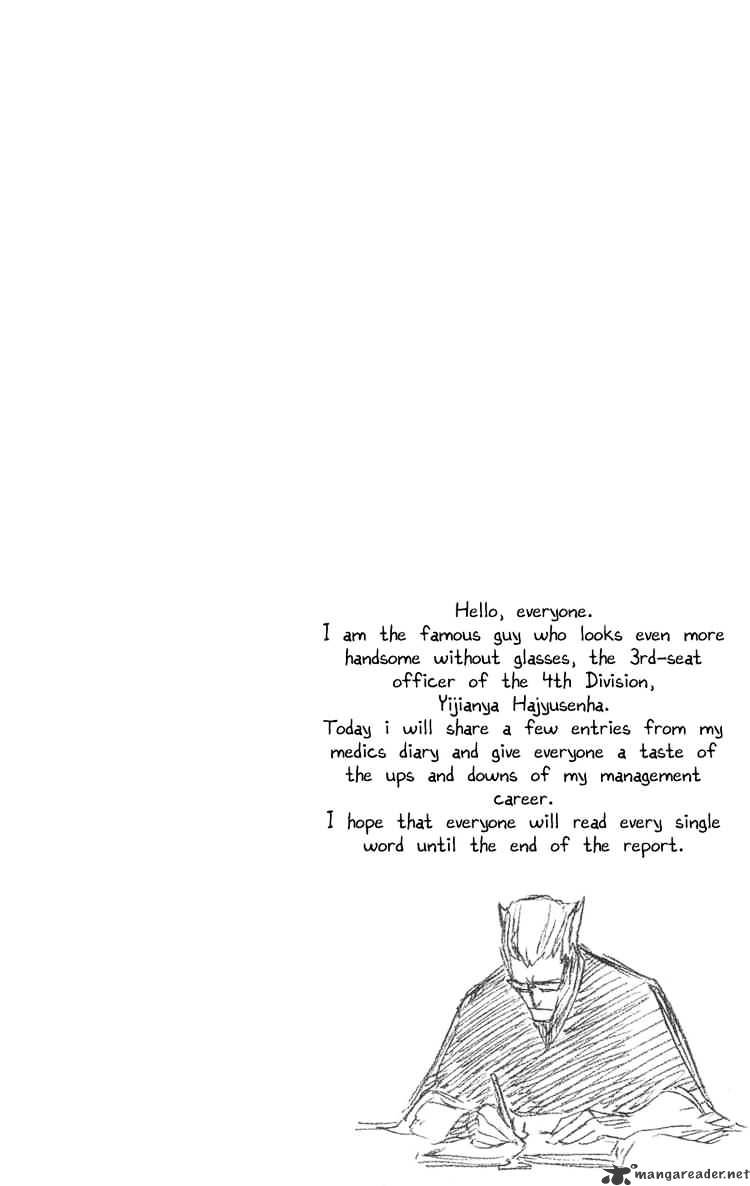 Hello, everyone.
I am the famous guy who looks even more
handsome without glasses, the 3rd-seat
officer of the 4th Division,
Yijianya Hajyusenha.
Today i will share a few entries from my
medics diary and give everyone a taste of
the ups and downs of my management
career.
I hope that everyone will read every single
word until the end of the report.
mangareader.net